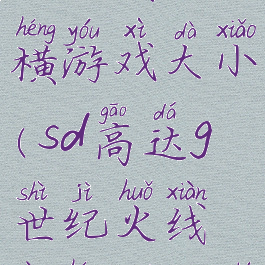 héng yóu xì dà xiǎo
横游戏大小
gāo dá
(sd高达g
shì jì huǒ xiàn
世纪火线